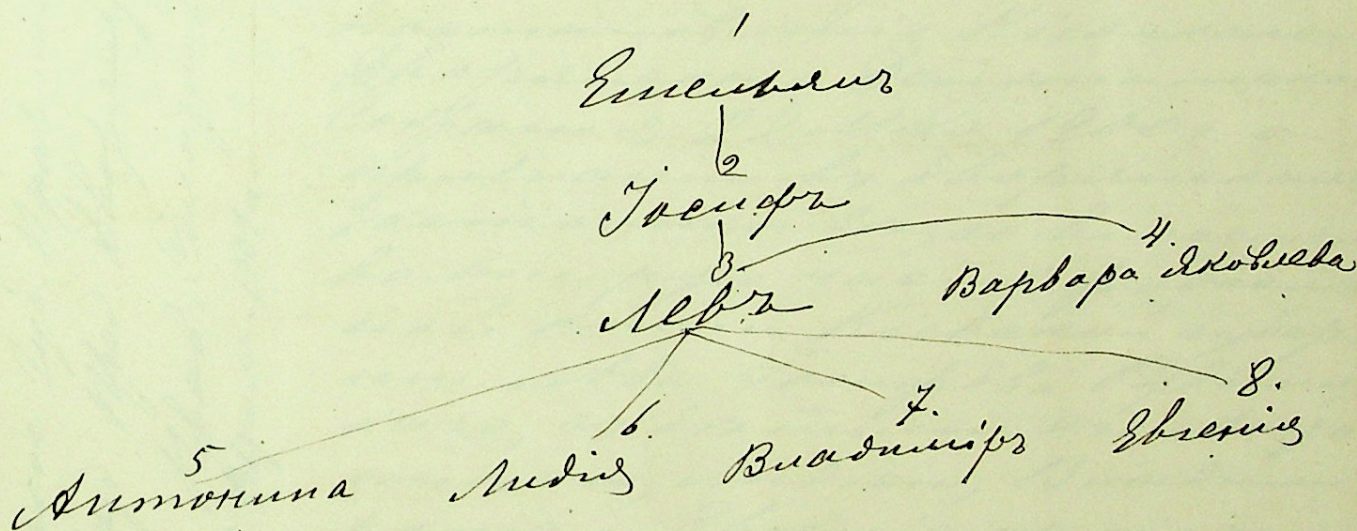 1
Емельянъ
2
Іосифъ
3 4.
Левъ Варвара Яковлева
5 6. 7. 8.
Антонина Лидія Владиміръ Евгенія